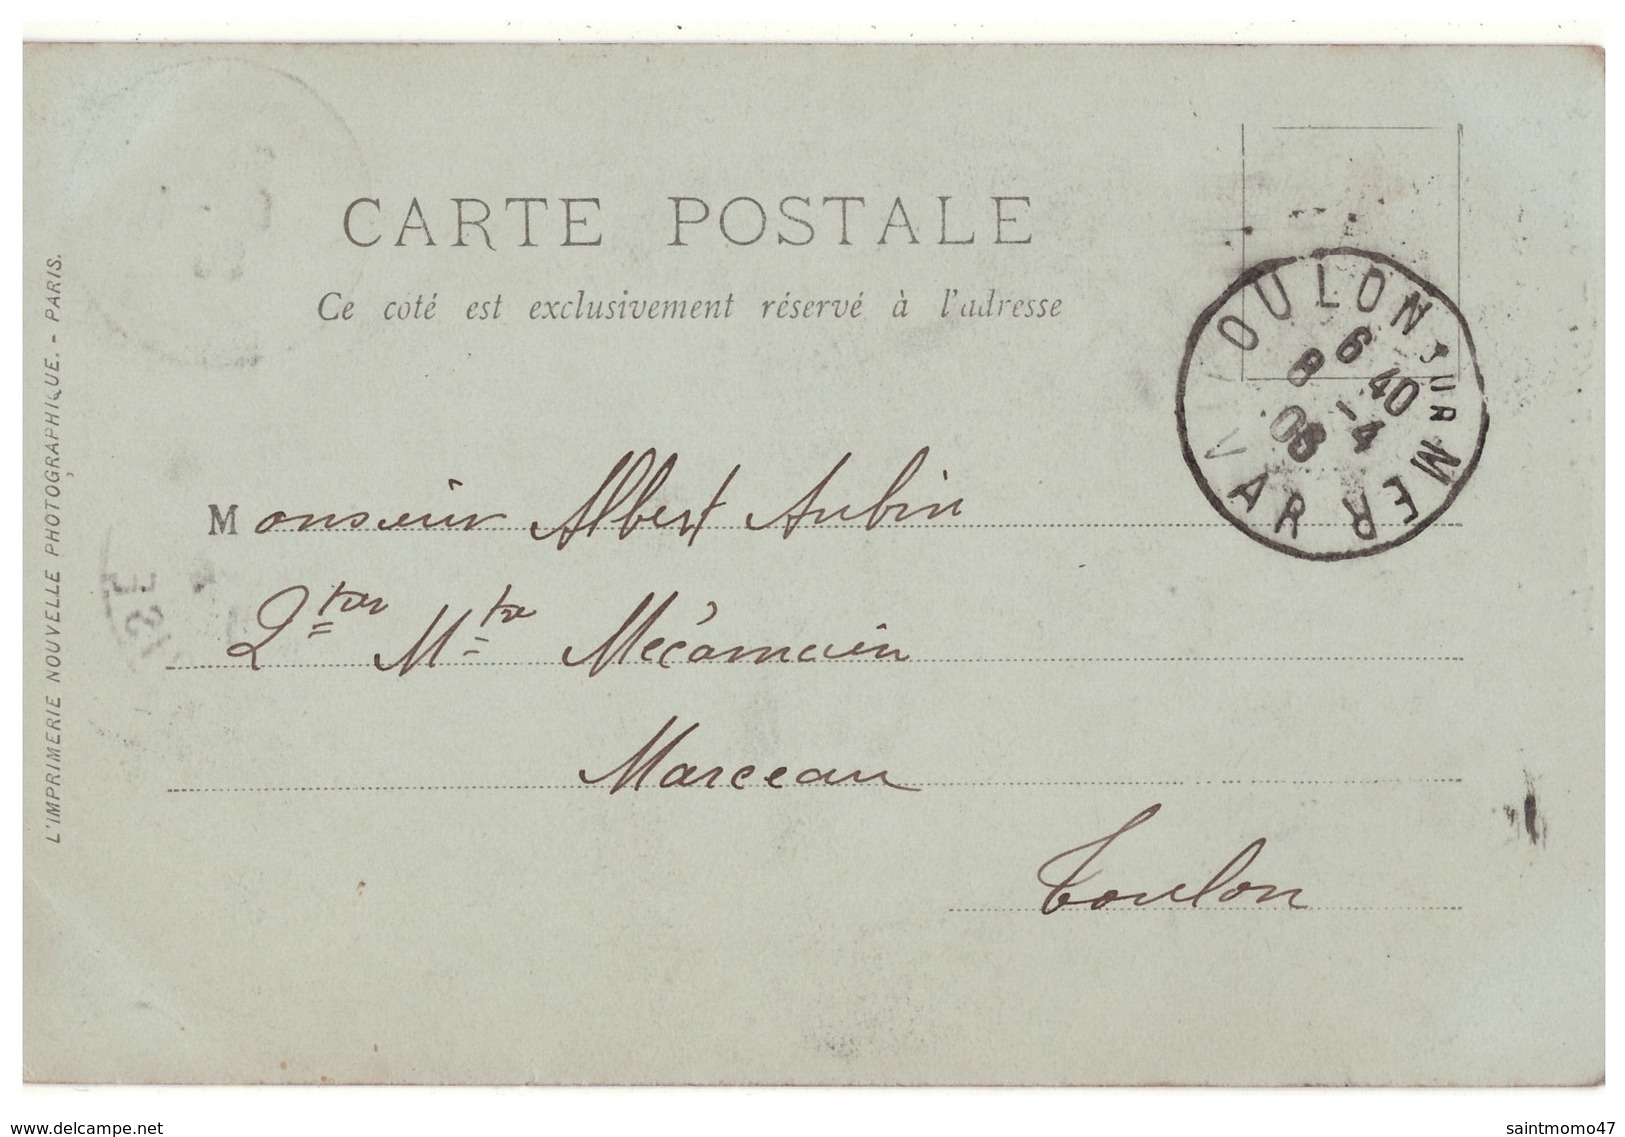 CARTE POSTALE
Ce coté est exclusivement réservé à l'adresse
L'IMPRIMERIE NOUVELLE PHOTOGRAPHIQUE. - PARIS.
TOULON SUR MER
6 40
8 -4
VAR
Monsieur Albert Aubin
Mécanicien
Marceau
Toulon
www.delcampe.net
saintmomo47